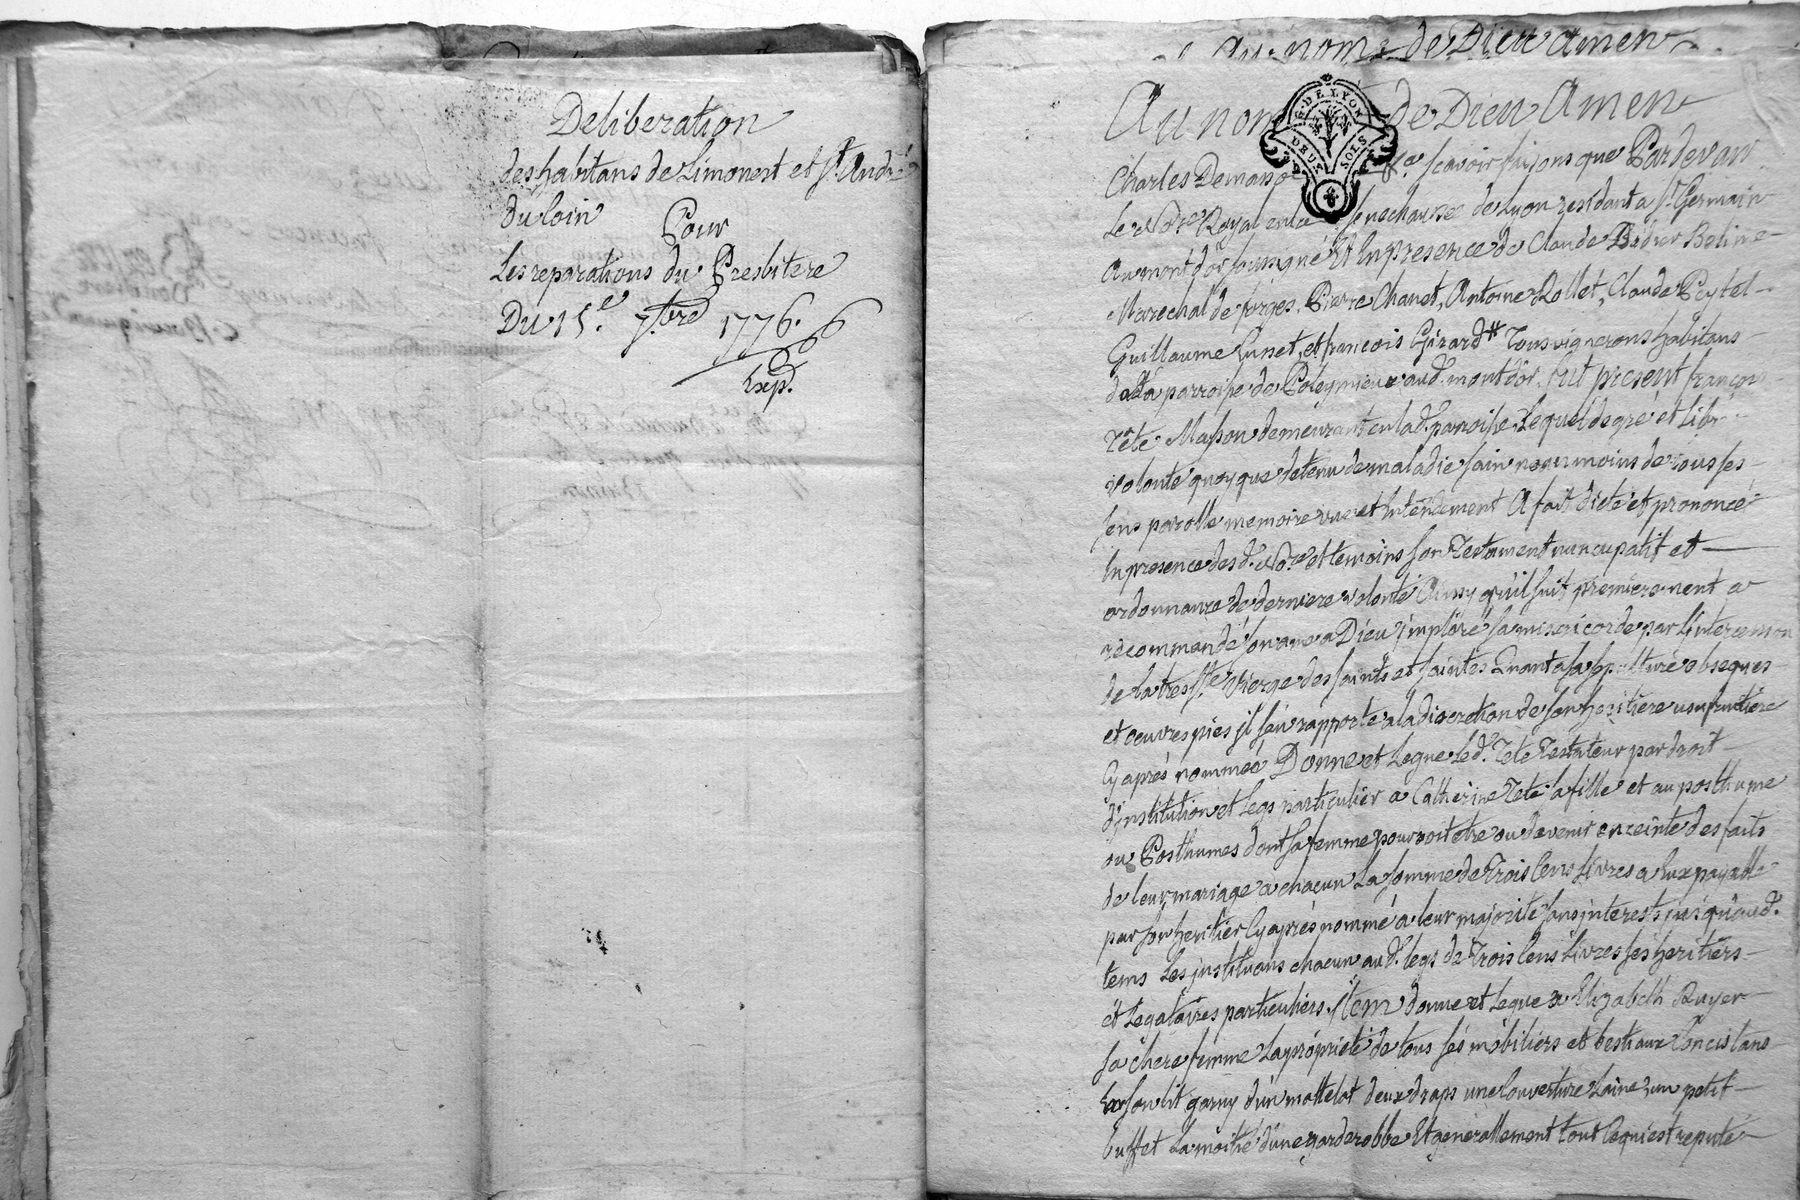 Deliberation
des habitans de Limonest et St. André
Du Coin Pour
Les reparations du Presbitere
Du 15e. 7bre 1776.
Exp.
Au nom de Dieu amen
Au nom de Dieu Amen
G. DE LYON
DEUX SOLS
Charles Demasso scavoir faisons que Pardevant
Le Nore. Royal en la senechaussée de Lyon residant a St. Germain
au mont d'or soussigné Et En presence de Claude Didier Beline
Marechal de forges, Pierre Chanet, Antoine Rollet, Claude Peytel
Guillaume Lunet, et francois Gérard Tous vignerons habitans
de La parroisse de Poleymieux aud. mont d'or, fut present francois
Tête Masson demeurant en lad. parroisse, Lequel de gré et Libre
volonté quoy que detenu de maladie sain neanmoins de tous ses
sens parolle memoire vue et Entendement A fait dicté et prononcé
En presence desd. Nore. et temoins son Testament nuncupatif et
ordonnance de derniere volonté Ainsy qu'il suit premierement a
recommandé son ame a Dieu imploré sa misericorde par L'intercession
de la tres Ste. Vierge des saints et saintes Quant a sa sepulture obseques
et oeuvres pies il s'en rapporte a la discretion de son heritiere usufruitiere
Cy après nommée Donne et Legue Led. Tete Testateur par droit
d'institution et legs particulier a Catherine Tete sa fille et au posthume
ou Posthumes dont sa femme pourroit etre ou devenir enceinte des faits
de leur mariage a chacun La somme de Trois Cens Livres a Eux payable
par son heritier Cy après nommé a leur majorité sans interests jusqu'aud.
tems Les instituans chacun aud. legs de Trois Cens Livres ses heritiers
et Legataires particuliers. Item donne et Legue a Elizabeth Ruyer
sa chere femme La propriété de tous ses mobiliers et bestiaux Consistans
En son lit garny d'un mattelat deux draps une Couverture Laine, un petit
buffet La moitié d'une garderobbe Et generallement tout Ce qui est reputé